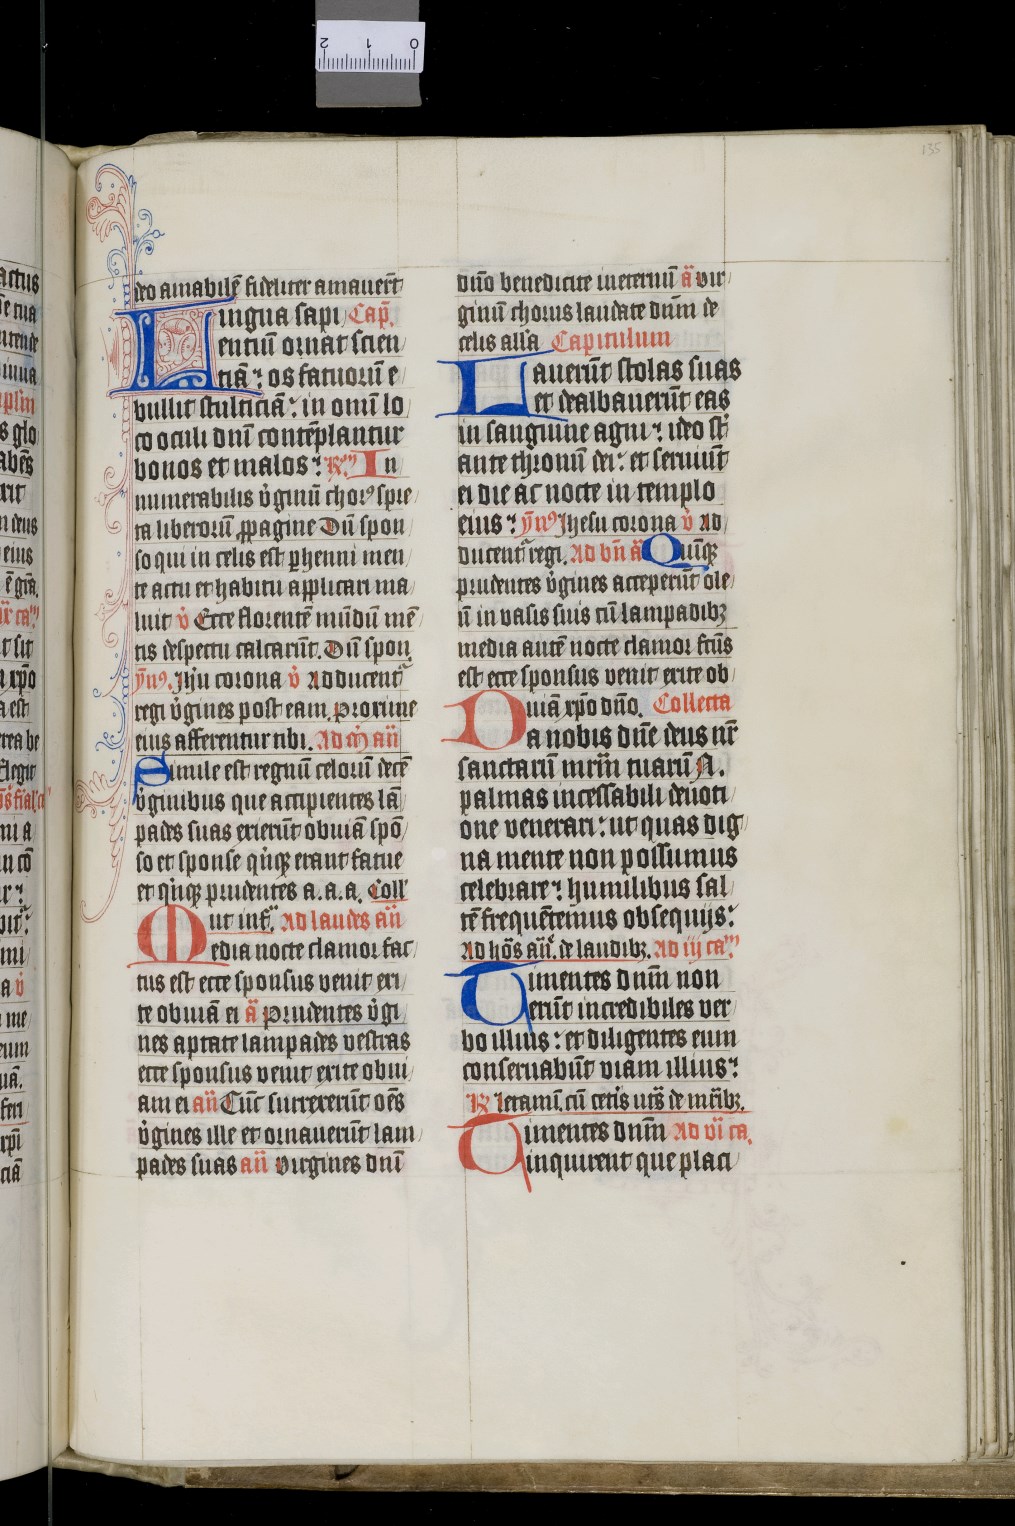 deo amabilē fideliter amauerūt
Lingua sapi Cap̄.
entiū ornat scien
tiā ⁊ os fatuorū e
bullit stulticiā: in omī lo
co oculi dn̄i contēplantur
bonos et malos: R̄m In
numerabilis v̇ginū chorꝰ spre
ta liberorū ꝓpagine Dū spon
so qui in celis est ꝑhenni men
te actu et habitu applicari ma
luit v̇ Ecce florentē mūdū mē
tis despectu calcarūt. Dū spon
ȳnꝰ. Jhū corona v̇ Adducent᷑
regi v̇gines post eam. proxime
eius afferentur tibi. Ad m̄ an̄
Simile est regnū celorū decē
v̇ginibus que accipientes lā
pades suas exierūt obuiā spō
so et sponse qinqꝫ erant fatue
et qinqꝫ prudentes a.a.a. Coll᷑
ut inf᷑. Ad laudes an̄
Media nocte clamor fac
tus est ecce sponsus venit exi
te obuiā ei ā Prudentes v̇gi
nes aptate lampades vestras
ecce sponsus venit exite obui
am ei an̄ Tūc surrexerūt oēs
v̇gines ille et ornauerūt lam
pades suas an̄ Virgines dn̄i
dn̄o benedicite in eternū ā vir
ginū chorus laudate dn̄m de
celis alla Capitulum
Lauerūt stolas suas
et dealbauerūt eas
in sanguine agni ⁊ ideo st̄
ante thronū dei: et seruiūt
ei die ac nocte in templo
eius ⁊ ȳnꝰ Jhesu corona v̇ Ad
ducent᷑ regi. Ad bn̄ ā Quīqꝫ
prudentes v̇gines acceperūt ole
ū in vasis suis cū lampadibꝫ
media autē nocte clamor fctūs
est ecce sponsus venit exite ob
uiā xp̄o dn̄o. Collecta
Da nobis dn̄e deus nr̄
sanctarū mr̄m tuarū N.
palmas incessabili deuoti
one venerari: ut quas dig
na mente non possumus
celebrare ⁊ humilibus sal
tē frequētemus obsequijs:
Ad hōs an̄. de laudibꝫ. Ad iij cam
Timentes dn̄m non
erūt incredibiles ver
bo illius: et diligentes eum
conseruabūt viam illius:
R̄ letamī. cū cetis vt̄s de mr̄ibꝫ.
Timentes dn̄m Ad vi ca.
inquirent que placi
135
0 1 2